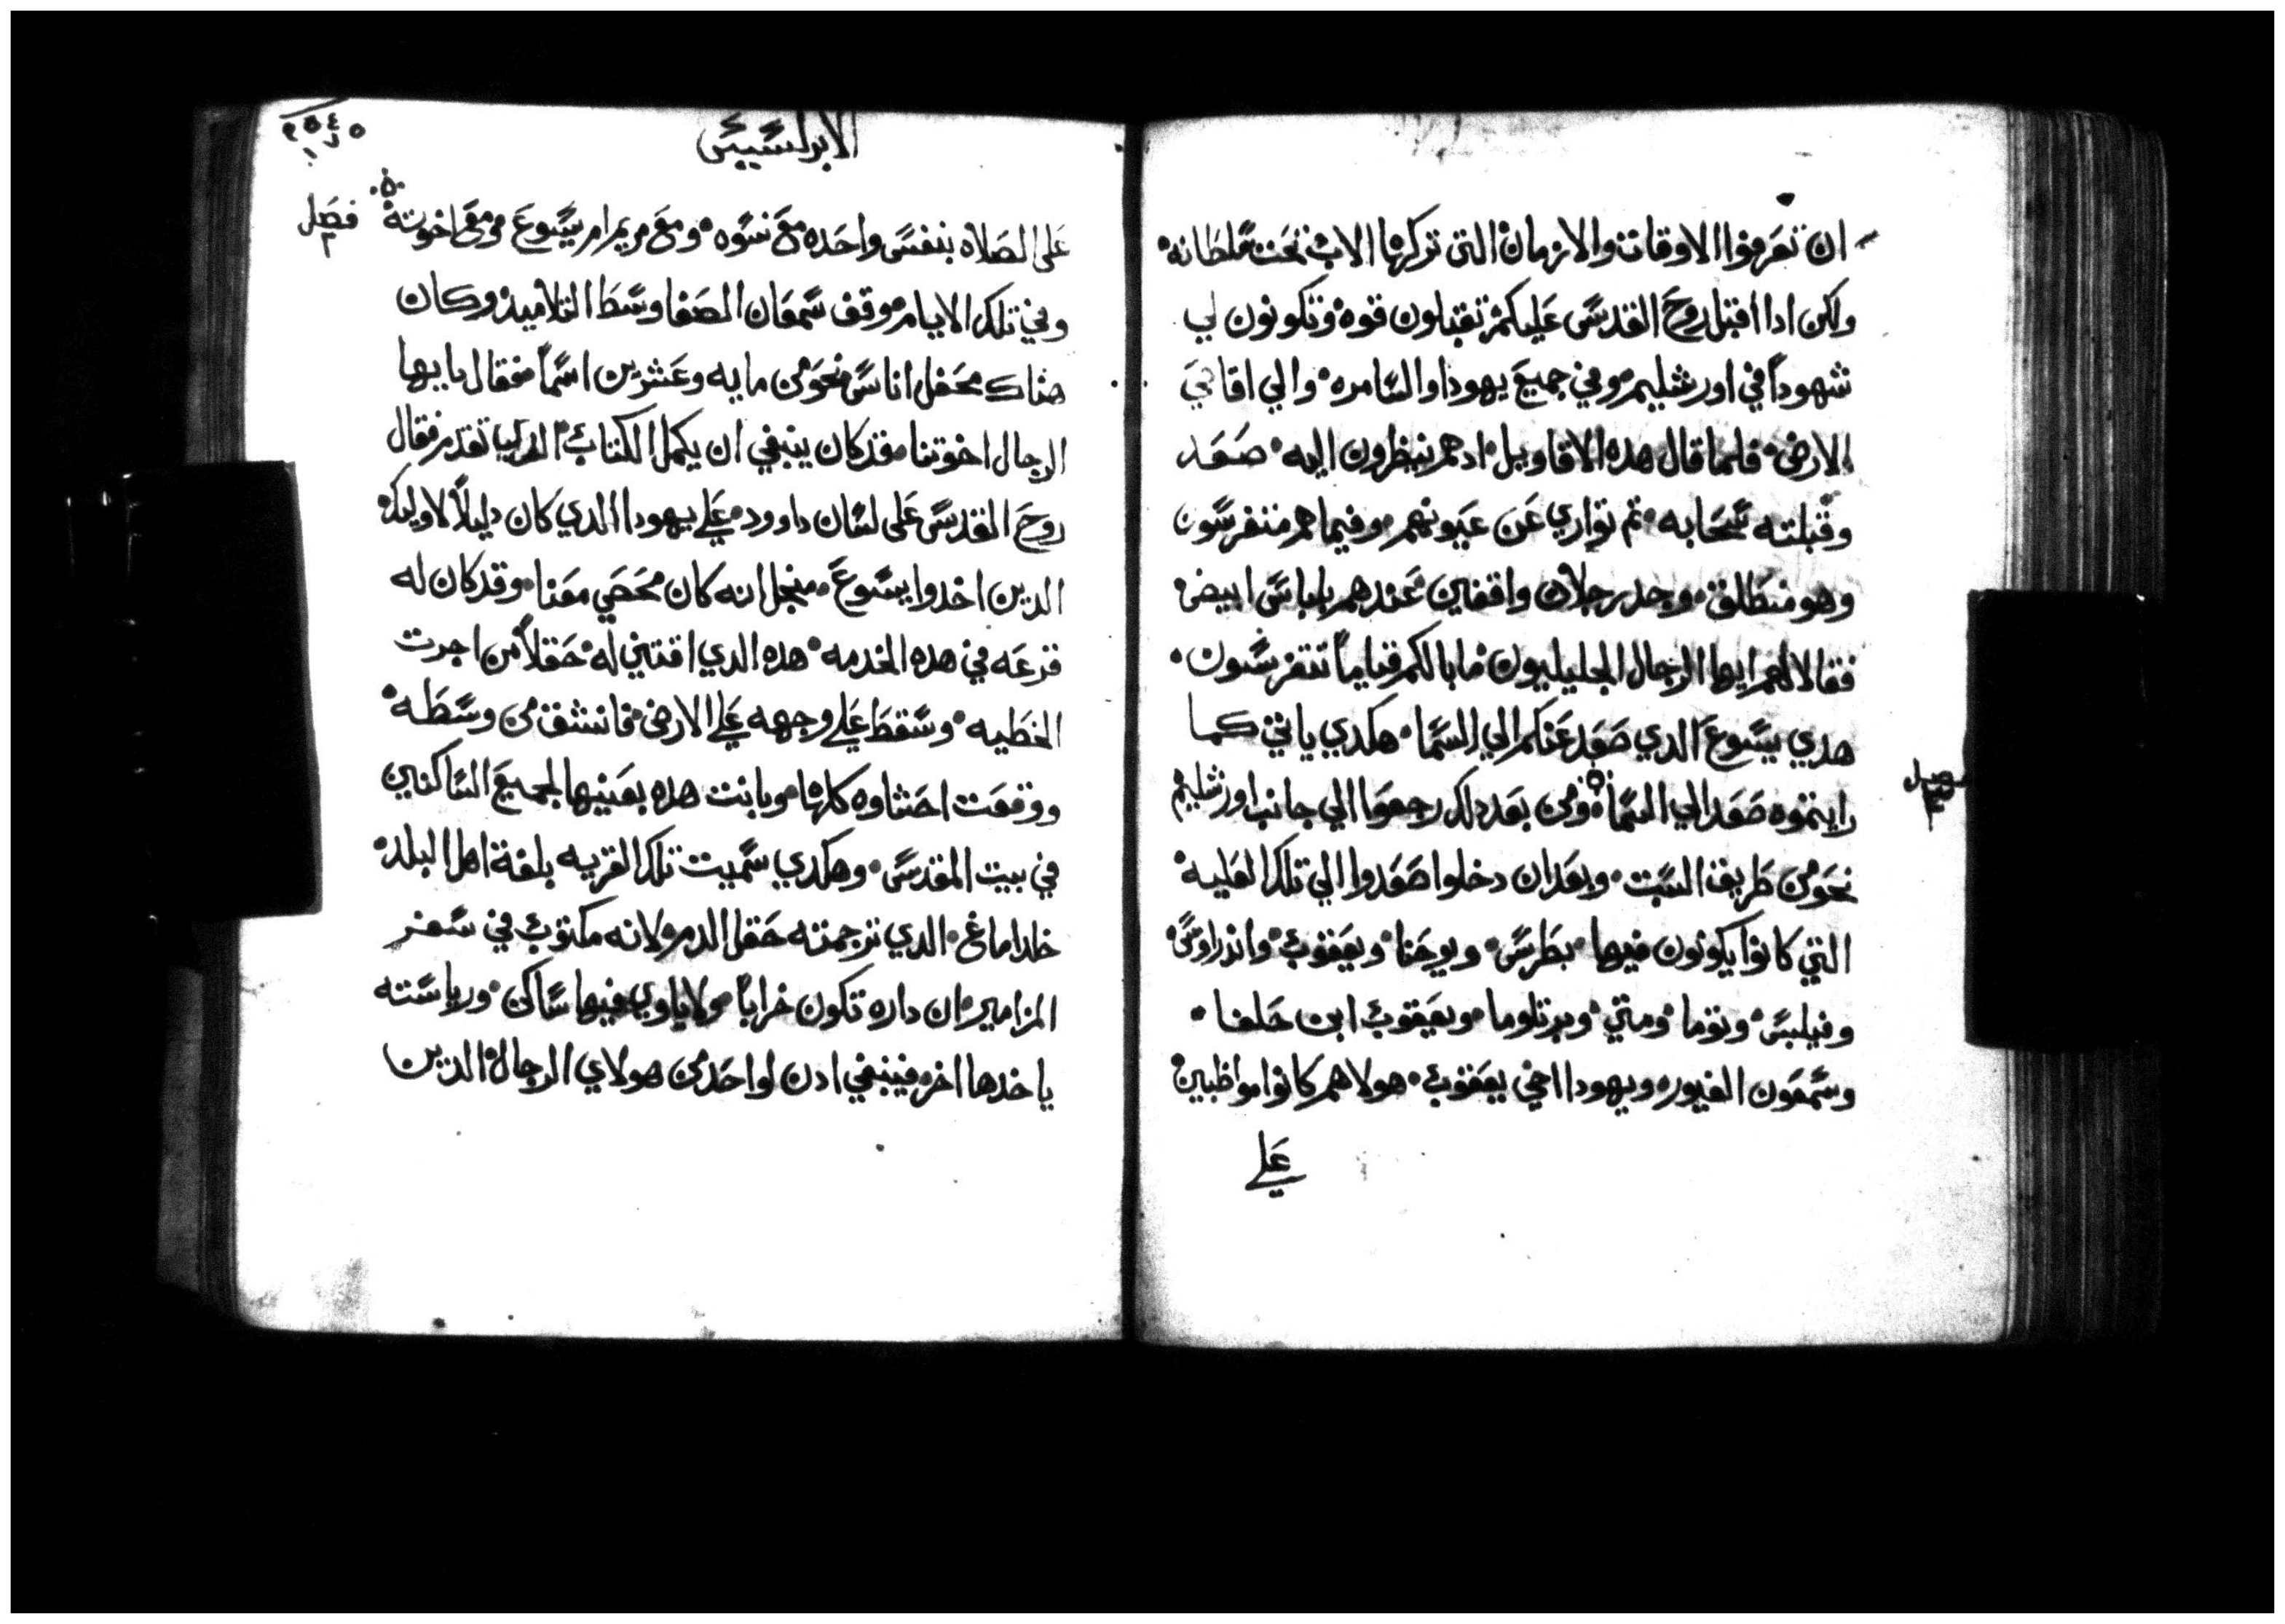 ان تعرفوا الاوقات والازمان التي تركها الاب تحت سلطانه
ولكن ادا اقبل روح القدس عليكم تقبلون قوه وتكونون لي
شهوداً في اورشليم وفي جميع يهودا والسامره والي اقاصي
الارض فلما قال هده الاقاويل ادهم ينظرون اليه صعد
وقبلته سحابه ثم تواري عن عيونهم وفيما هم متفرسون
وهو منطلق وجد رجلان واقفين عندهم بلباس ابيض
فقالا لهم ايها الرجال الجليليون ما بالكم قياماً تتفرسون
هدي يسوع الدي صعد عنكم الي السما هكدي ياتي كما
رايتموه صعد الي السما ومن بعد دلك رجعوا الي جانب اورشليم
فصل
نحو من طريق السبت وبعد ان دخلوا صعدوا الي تلك العليه
التي كانوا يكونون فيها بطرس ويوحنا ويعقوب واندراوس
وفيلبس وتوما ومتي وبرتلوما ويعقوب ابن حلفا
وسمعون الغيور ويهودا اخي يعقوب هولاهم كانوا مواظبين
علي
الابركسيس
على الصلاه بنفس واحده مع نسوه ومع مريم ام يسوع ومع اخوته
فصل ٣
وفي تلك الايام وقف سمعان الصفا وسط التلاميذ وكان
هناك محفل اناس نحو من مايه وعشرين اسماً فقال يا ايها
الرجال اخوتنا قد كان ينبغي ان يكمل الكتاب الدي تقدم فقال
روح القدس على لسان داوود علي يهودا الدي كان دليلاً لاوليك
الدين اخدوا يسوع منجل انه كان محصي معنا وقد كان له
قرعه في هده الخدمه هده الدي اقتني له حقلاً من اجرت
الخطيه وسقط علي وجهه علي الارض فانشق من وسطه
ووقعت احشاوه كلها وبانت هده بعينها لجميع الساكنين
في بيت المقدس وهكدي سميت تلك القريه بلغة اهل البلد
خلداماغ الدي ترجمته حقل الدم لانه مكتوب في سفر
المزامير ان داره تكون خراباً ولا ياوي فيها ساكن ورياسته
ياخدها اخر فينبغي ادن لواحد من هولاي الرجال الدين